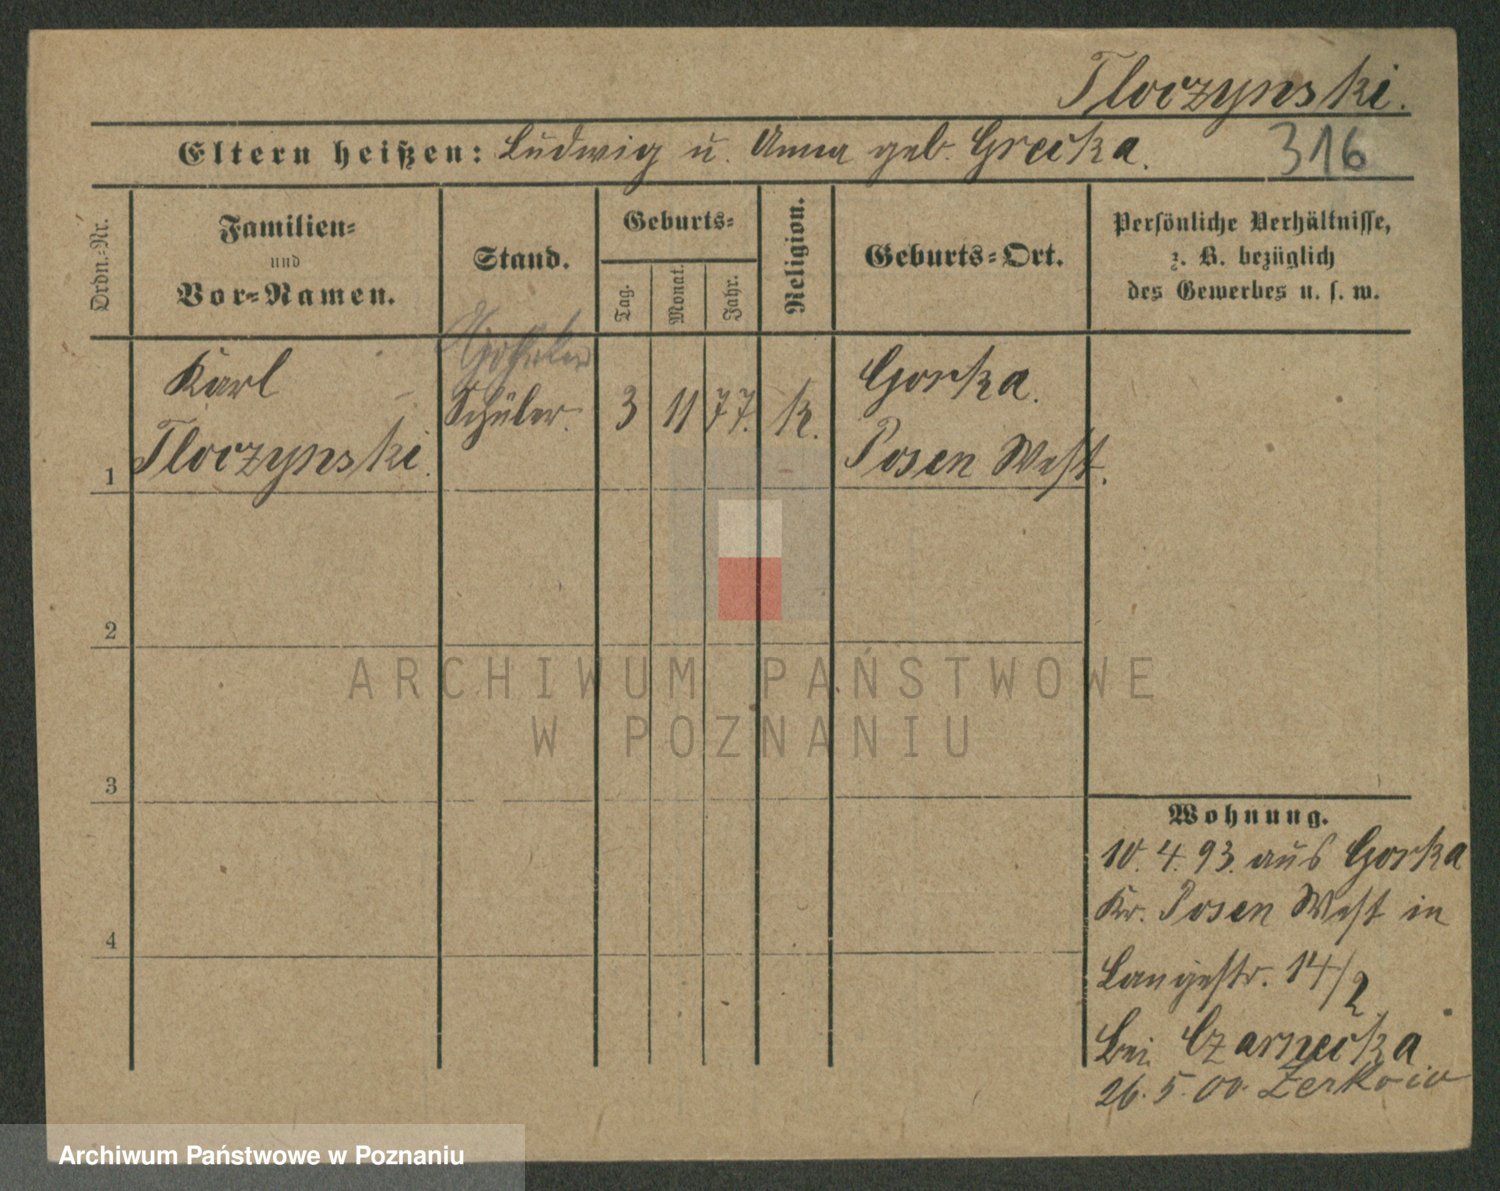 Tloczynski.
Eltern heißen: Ludwig u. Anna geb. Grecka.
316
Ordn.-Nr.
Familien-
und
Vor-Namen.
Stand.
Geburts-
Tag.
Monat.
Jahr.
Religion.
Geburts-Ort.
Persönliche Verhältnisse,
z. B. bezüglich
des Gewerbes u. s. w.
1
Karl
Tloczynski.
Schüler.
3
11
77.
k.
Gorka.
Posen West.
2
3
4
Wohnung.
10.4.93. aus Gorka
Kr. Posen West in
Langestr. 14/2
bei Czarnecka
26.5.00. Zerkow
ARCHIWUM PAŃSTWOWE
W POZNANIU
Archiwum Państwowe w Poznaniu